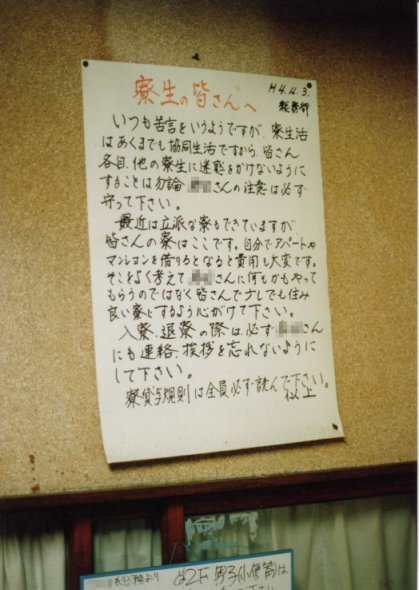 H4.4.3.
総務部
寮生の皆さんへ
いつも苦言をいうようですが、寮生活
はあくまでも協同生活ですから、皆さん
各自、他の寮生に迷惑をかけないように
することは勿論 さんの注意は必ず
守って下さい。
最近は立派な寮もできていますが
皆さんの寮はここです。自分でアパートや
マンションを借りるとなると費用も大変です。
そこをよく考えて さんに何もかもやって
もらうのではなく皆さんで少しでも住み
良い寮とするよう心がけて下さい。
入寮、退寮の際は必ず さん
にも連絡、挨拶を忘れないように
して下さい。
寮貸与規則は全員必ず読んで下さい。
以上
より
2F 男子小便器は
下さい